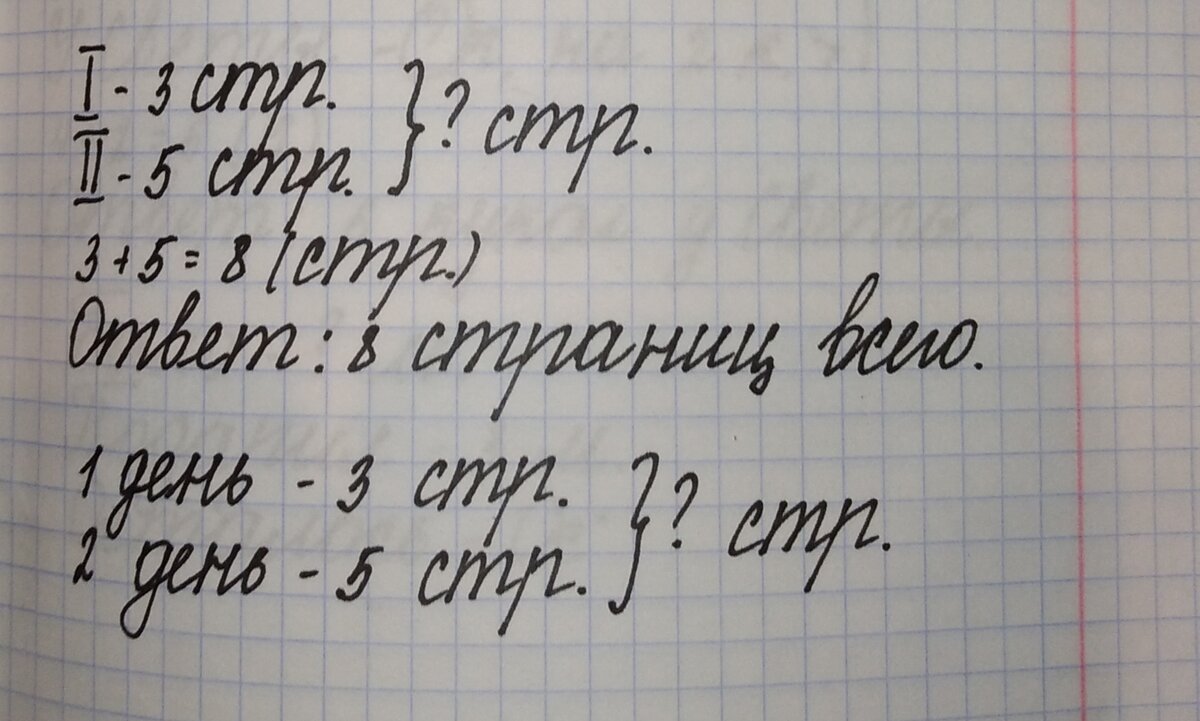 I - 3 стр. } ? стр.
II - 5 стр.
3 + 5 = 8 (стр.)
Ответ: 8 страниц всего.
1 день - 3 стр. } ? стр.
2 день - 5 стр.